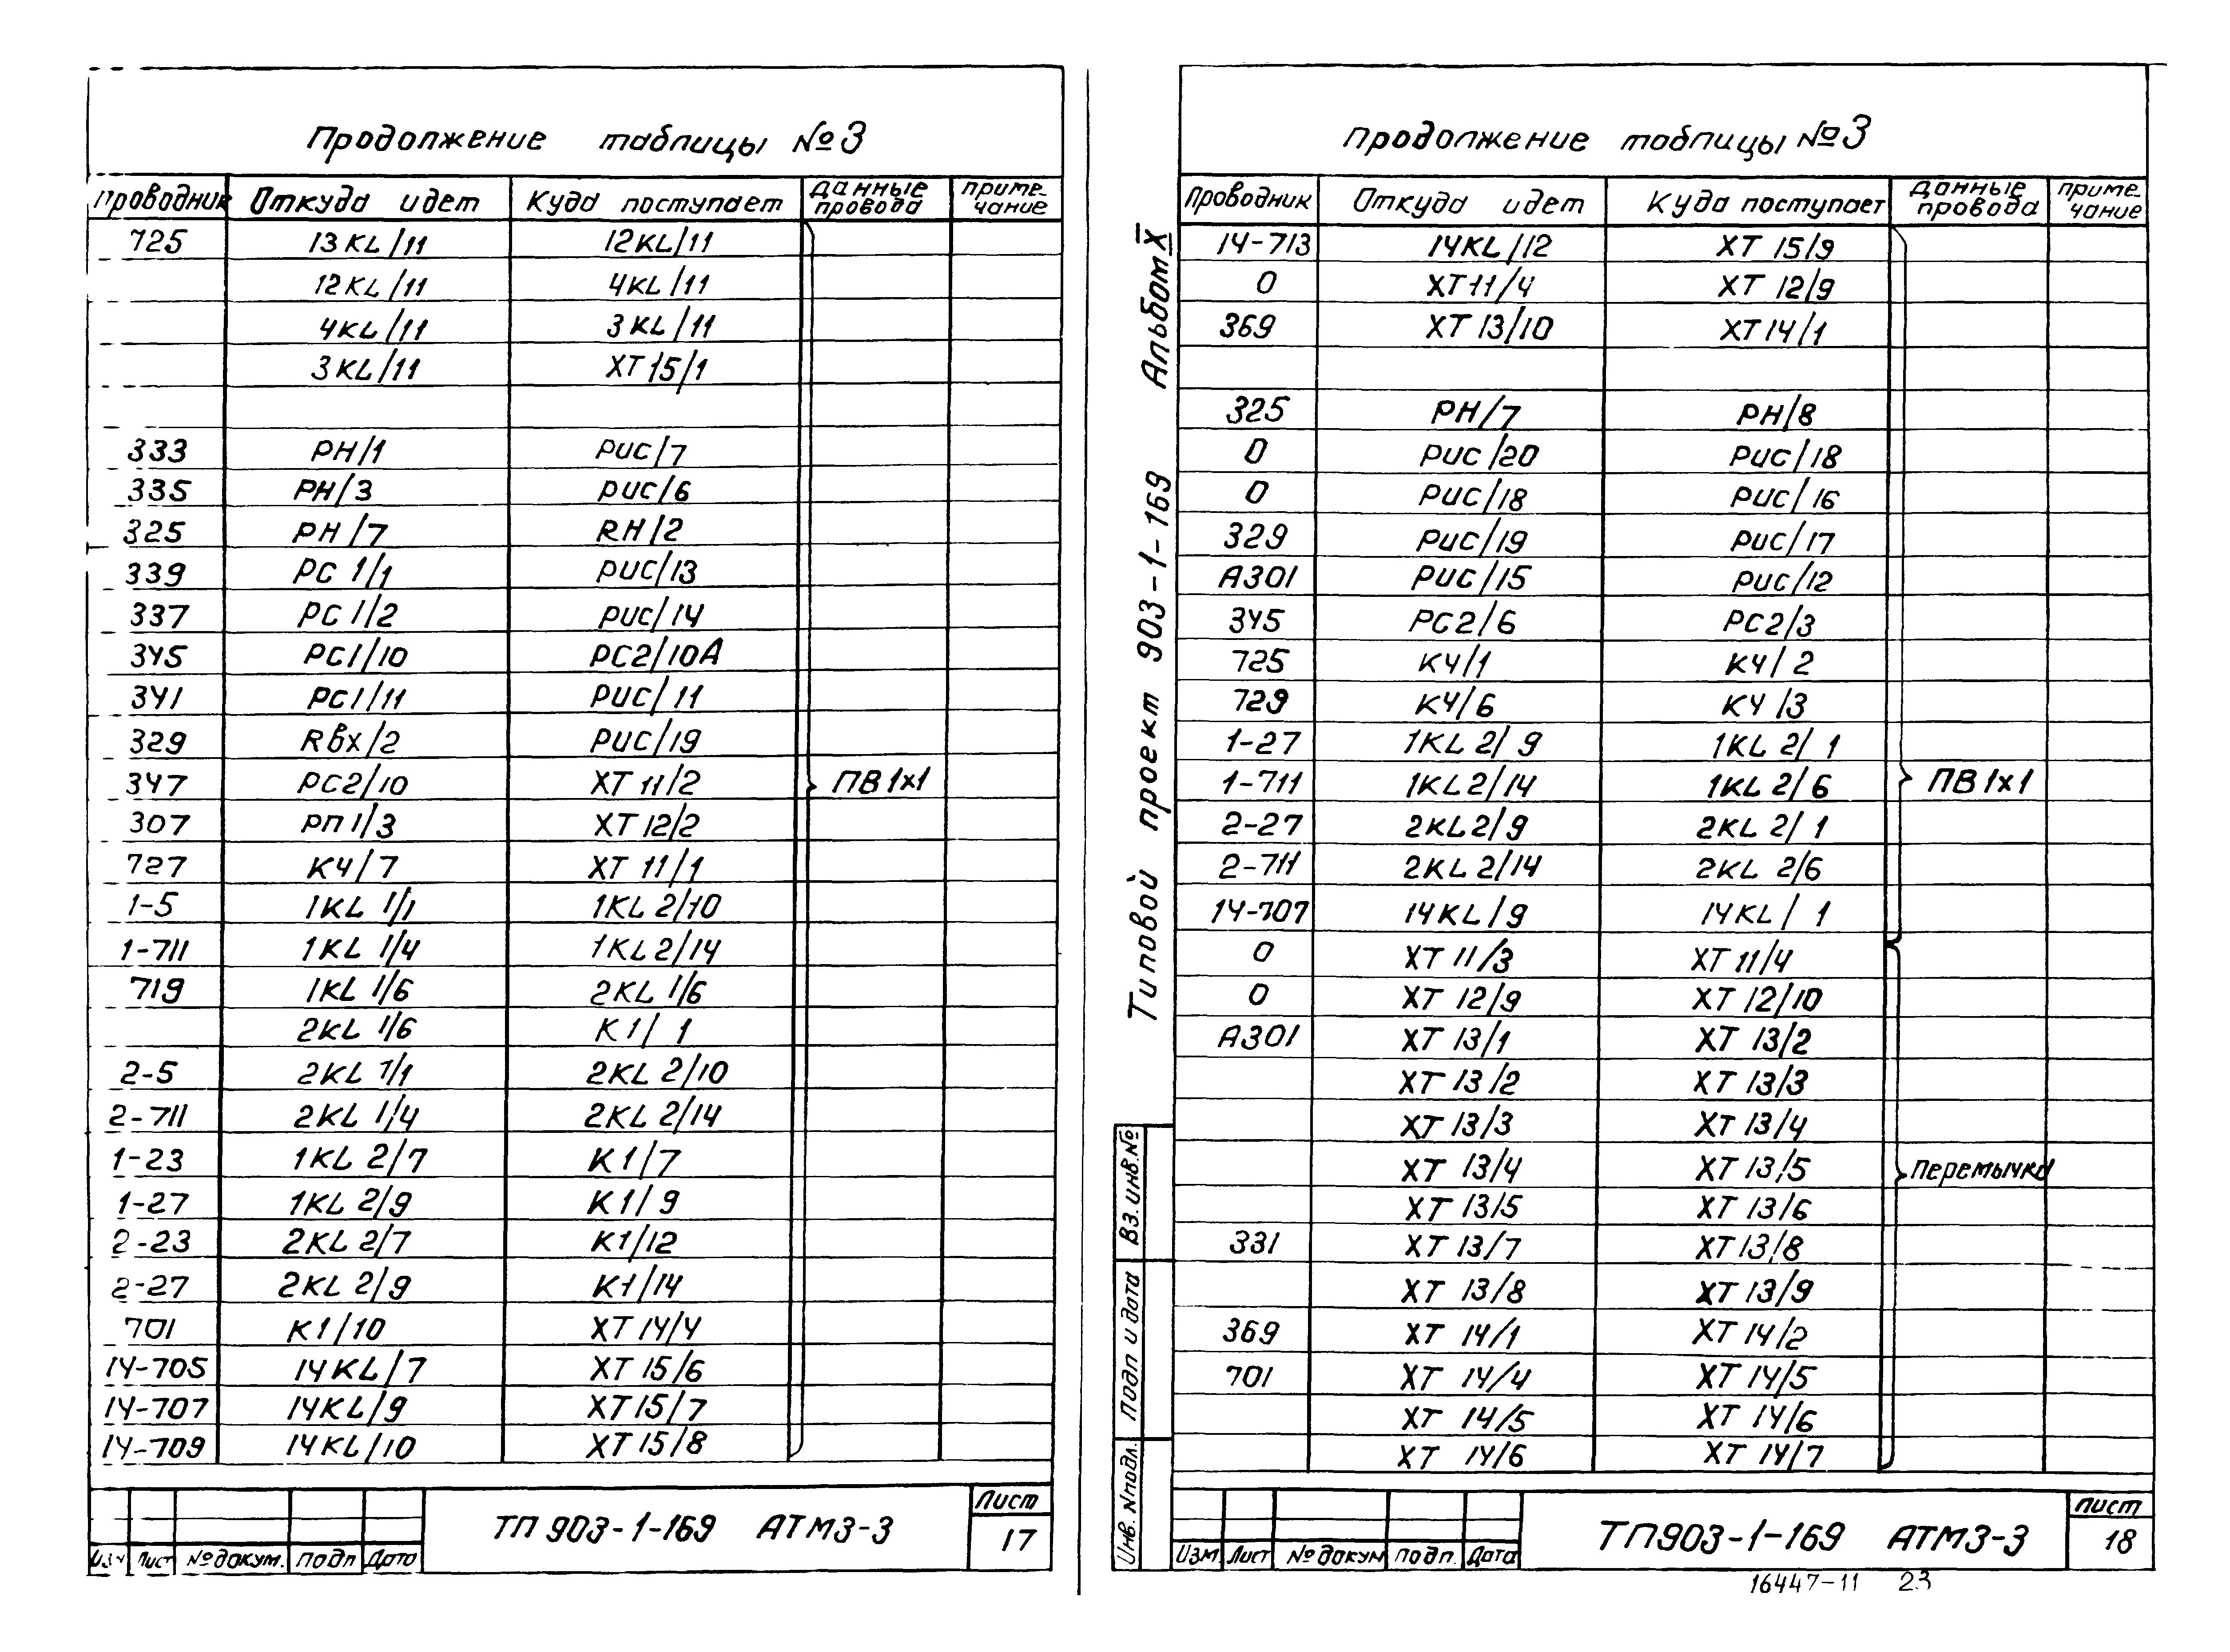 Продолжение таблицы №3
Проводник Откуда идет Куда поступает Данные провода Примечание
725 13KL/11 12KL/11
12KL/11 4KL/11
4KL/11 3KL/11
3KL/11 XT15/1
333 РН/1 РИС/7
335 РН/3 РИС/6
325 РН/7 RH/2
339 РС 1/1 РИС/13
337 РС 1/2 РИС/14
345 РС1/10 РС2/10А
341 РС1/11 РИС/11
329 Rвх/2 РИС/19
347 РС2/10 XT 11/2 ПВ1х1
307 РП 1/3 XT 12/2
727 КЧ/7 XT 11/1
1-5 1KL 1/1 1KL 2/10
1-711 1KL 1/4 1KL 2/14
719 1KL 1/6 2KL 1/6
2KL 1/6 К1/1
2-5 2KL 1/1 2KL 2/10
2-711 2KL 1/4 2KL 2/14
1-23 1KL 2/7 К1/7
1-27 1KL 2/9 К1/9
2-23 2KL 2/7 К1/12
2-27 2KL 2/9 К1/14
701 К1/10 XT14/4
14-705 14KL/7 XT 15/6
14-707 14KL/9 XT15/7
14-709 14KL/10 XT 15/8
Изм Лист № докум. Подп Дата
ТП 903-1-169 АТМ3-3
Лист
17
Продолжение таблицы №3
Проводник Откуда идет Куда поступает Данные провода Примечание
14-713 14KL/12 XT 15/9
0 XT11/4 XT 12/9
369 XT 13/10 XT14/1
325 РН/7 РН/8
0 РИС/20 РИС/18
0 РИС/18 РИС/16
329 РИС/19 РИС/17
А301 РИС/15 РИС/12
345 РС2/6 РС2/3
725 КЧ/1 КЧ/2
729 КЧ/6 КЧ/3
1-27 1KL 2/9 1KL 2/1
1-711 1KL2/14 1KL 2/6 ПВ1х1
2-27 2KL2/9 2KL 2/1
2-711 2KL 2/14 2KL 2/6
14-707 14KL/9 14KL/1
0 XT 11/3 XT 11/4
0 XT 12/9 XT 12/10
А301 XT 13/1 XT 13/2
XT 13/2 XT 13/3
XT 13/3 XT 13/4
XT 13/4 XT 13/5 Перемычка
XT 13/5 XT 13/6
331 XT 13/7 XT13/8
XT 13/8 XT 13/9
369 XT 14/1 XT 14/2
701 XT 14/4 XT 14/5
XT 14/5 XT 14/6
XT 14/6 XT 14/7
Изм. Лист № докум Подп. Дата
ТП903-1-169 АТМ3-3
Лист
18
Типовой проект 903-1-169 Альбом X
Инв. № подл. Подп и дата Вз. инв. №
16447-11 23